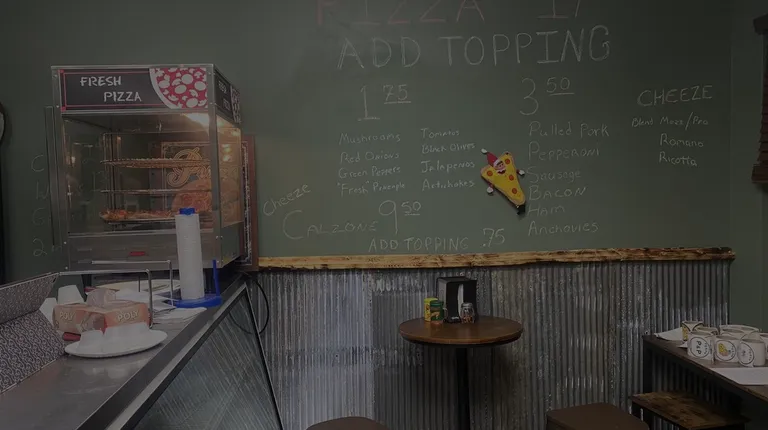 PIZZA 17
ADD TOPPING
1 75
Mushrooms
Red Onions
Green Peppers
"Fresh" Pineapple
Tomato
Black Olives
Jalapenos
Artichokes
3 50
Pulled Pork
Pepperoni
Sausage
Bacon
Ham
Anchovies
CHEEZE
Blend, Mozz/Pro
Romano
Ricotta
Cheeze
Calzone 9 50
ADD TOPPING .75
FRESH
PIZZA